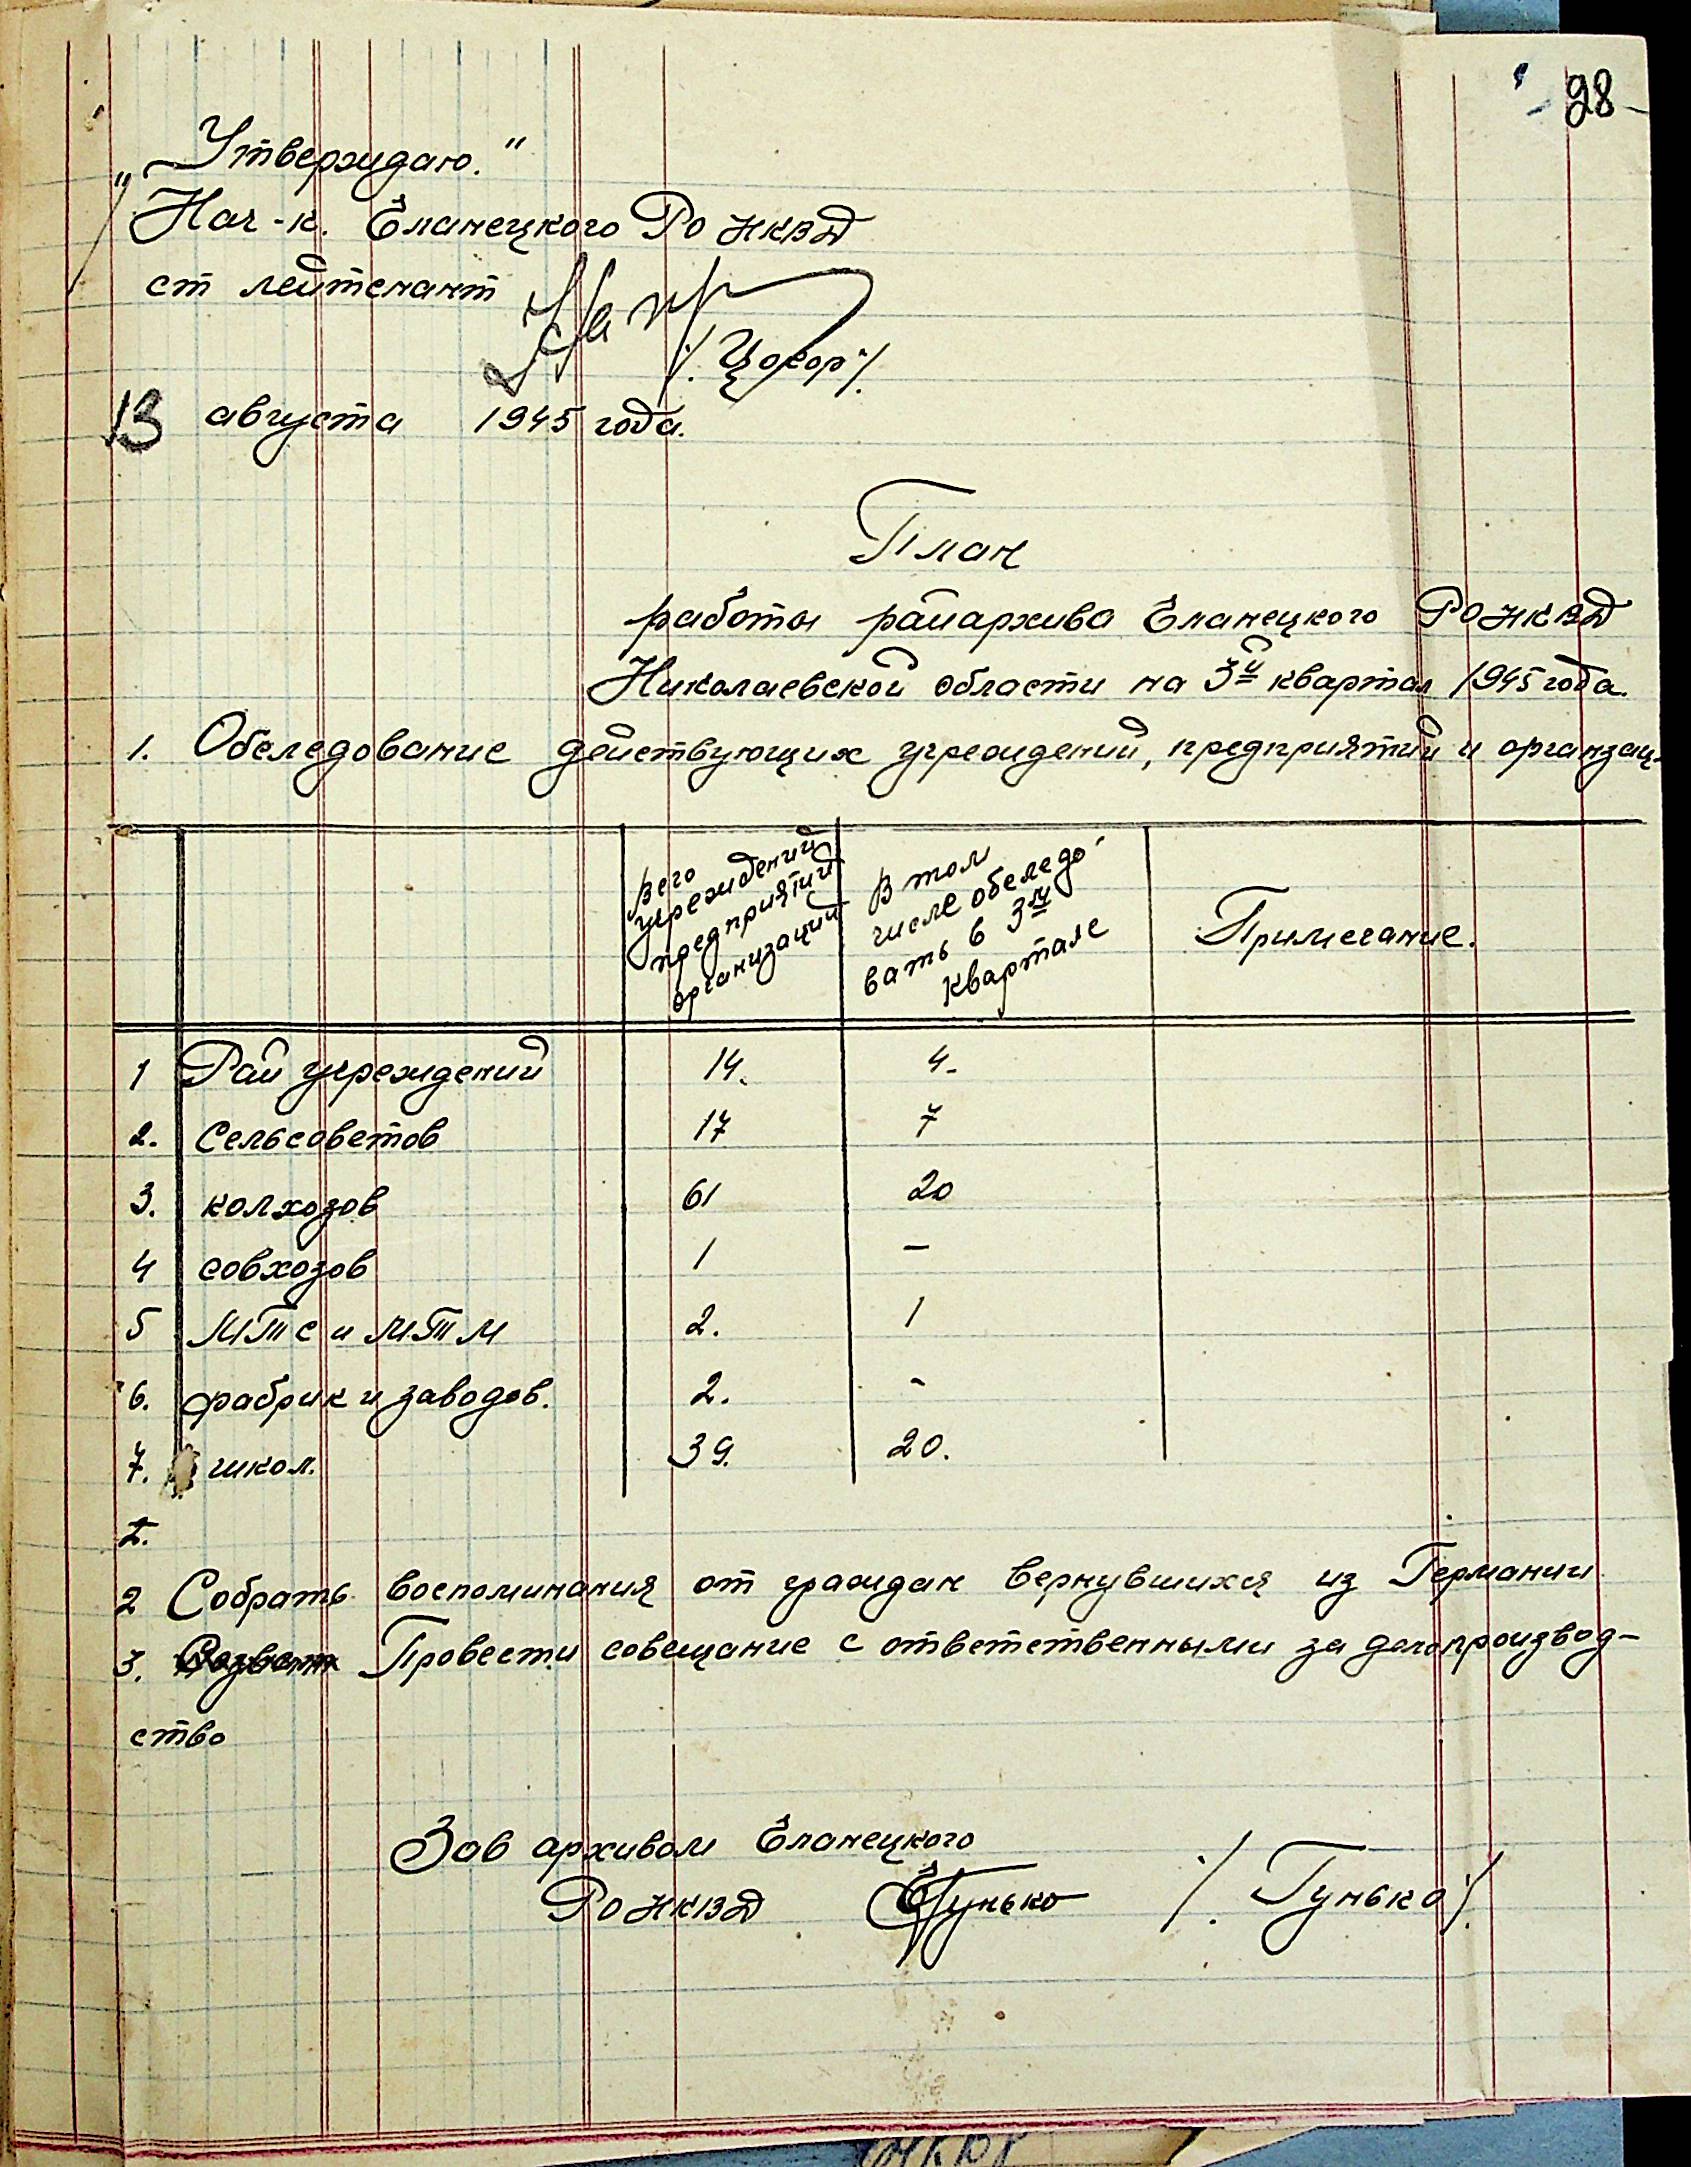 - 28 -
„Утверждаю."
Нач-к. Еланецкого РО НКВД
ст лейтенант
/. Цокор ./.
13 августа 1945 года.
План
работы райархива Еланецкого РО НКВД
Николаевской области на 3й квартал 1945 года.
1. Обследование действующих учреждений, предприятий и организац.
Всего учреждений предприятий организаций
В том числе обследовать в 3м квартале
Примечание.
1 Рай учреждений 14. 4-
2. Сельсоветов 17 7
3. колхозов 61 20
4 совхозов 1 —
5 МТС и МТМ 2. 1
6. фабрик и заводов. 2. -
7. школ. 39. 20.
2.
2 Собрать воспоминания от граждан вернувшихся из Германии
3. Провести совещание с ответственными за делопроизвод-
ство
Зав архивом Еланецкого
РО НКВД Гунько /. Гунько ./.